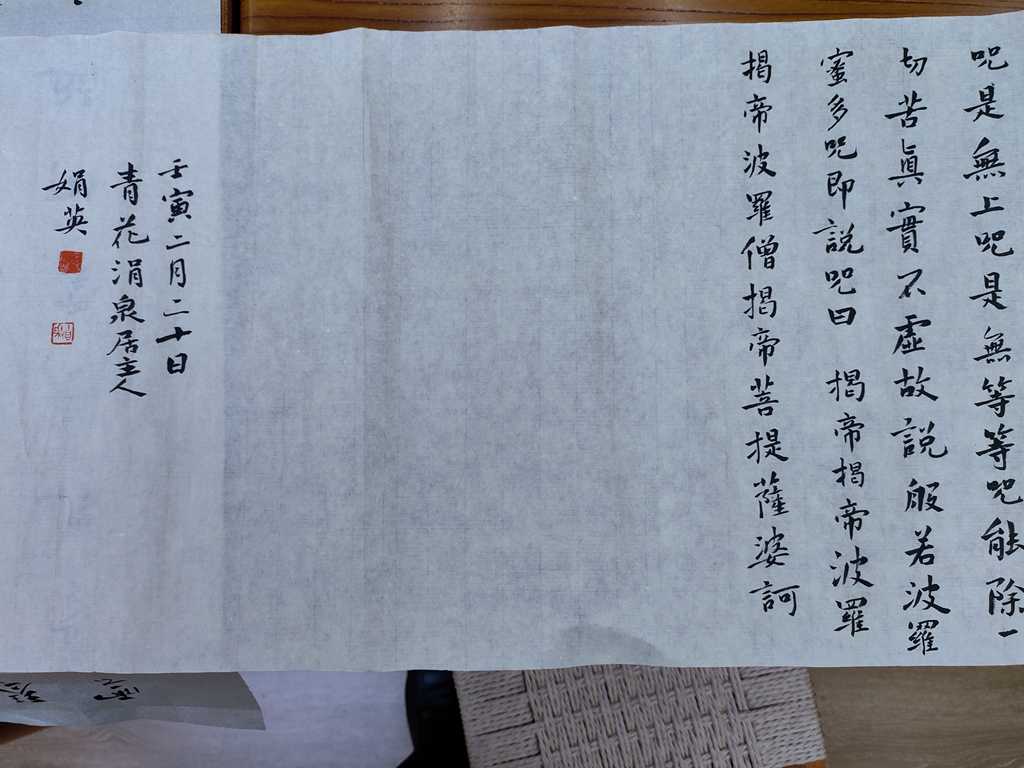 呪是無上呪是無等等呪能除一
切苦眞實不虛故說般若波羅
蜜多呪即說呪曰 揭帝揭帝波羅
揭帝波羅僧揭帝菩提薩婆訶
壬寅二月二十日
青花涓泉居主人
娟英